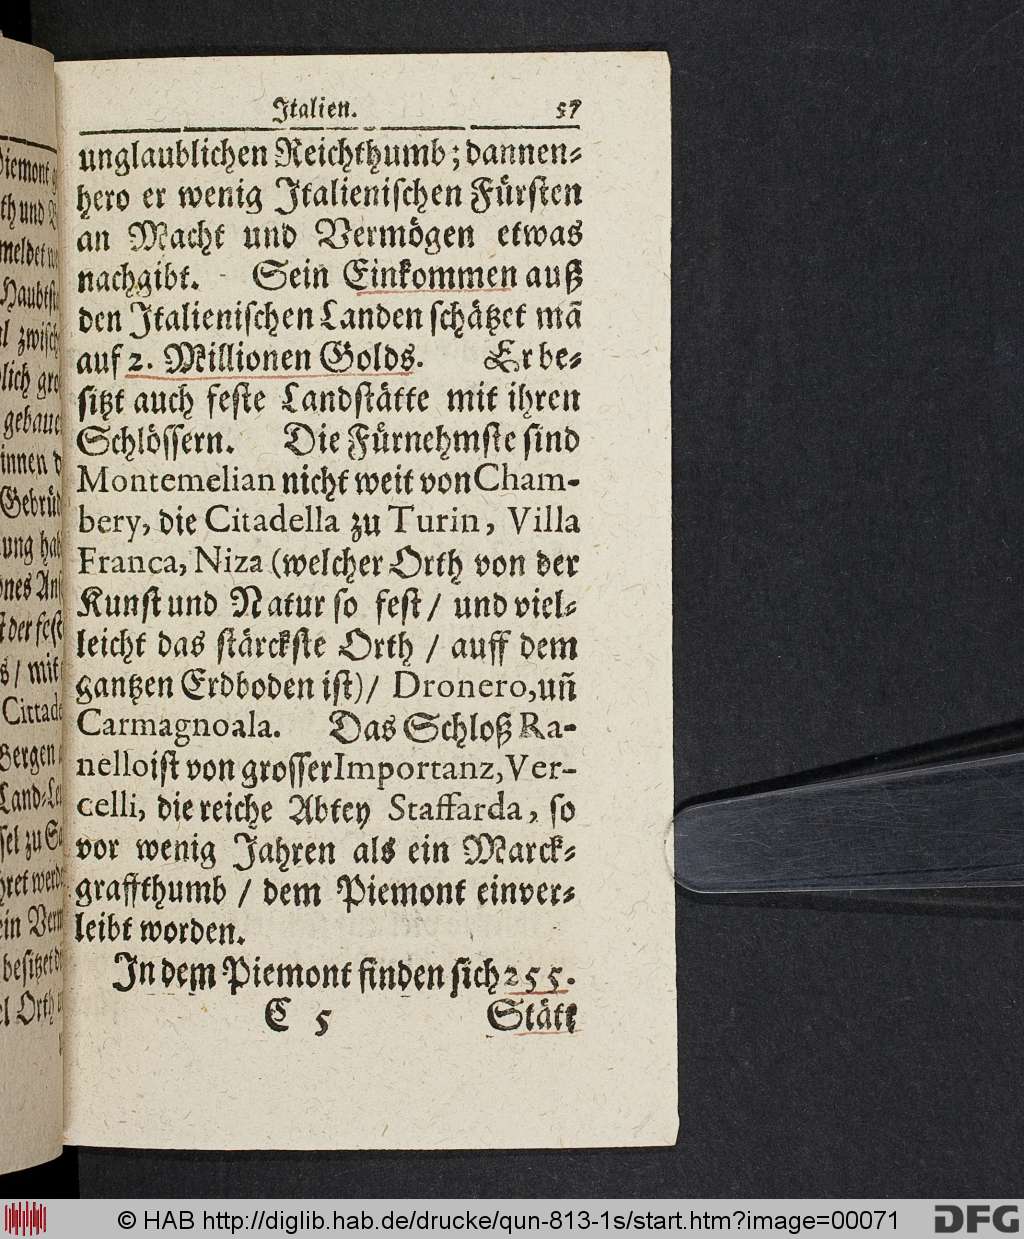 Italien. 57
unglaublichen Reichthumb; dannen-
hero er wenig Italienischen Fürsten
an Macht und Vermögen etwas
nachgibt. Sein Einkommen auß
den Italienischen Landen schätzet mā
auf 2. Millionen Golds. Er be-
sitzt auch feste Landstätte mit ihren
Schlössern. Die Fürnehmste sind
Montemelian nicht weit von Cham-
bery, die Citadella zu Turin, Villa
Franca, Niza (welcher Orth von der
Kunst und Natur so fest / und viel-
leicht das stärckste Orth / auff dem
gantzen Erdboden ist) / Dronero, uñ
Carmagnoala. Das Schloß Ra-
nello ist von grosser Importanz, Ver-
celli, die reiche Abtey Staffarda, so
vor wenig Jahren als ein Marck-
graffthumb / dem Piemont einver-
leibt worden.
In dem Piemont finden sich 255.
C 5 Stätt
© HAB http://diglib.hab.de/drucke/qun-813-1s/start.htm?image=00071 DFG